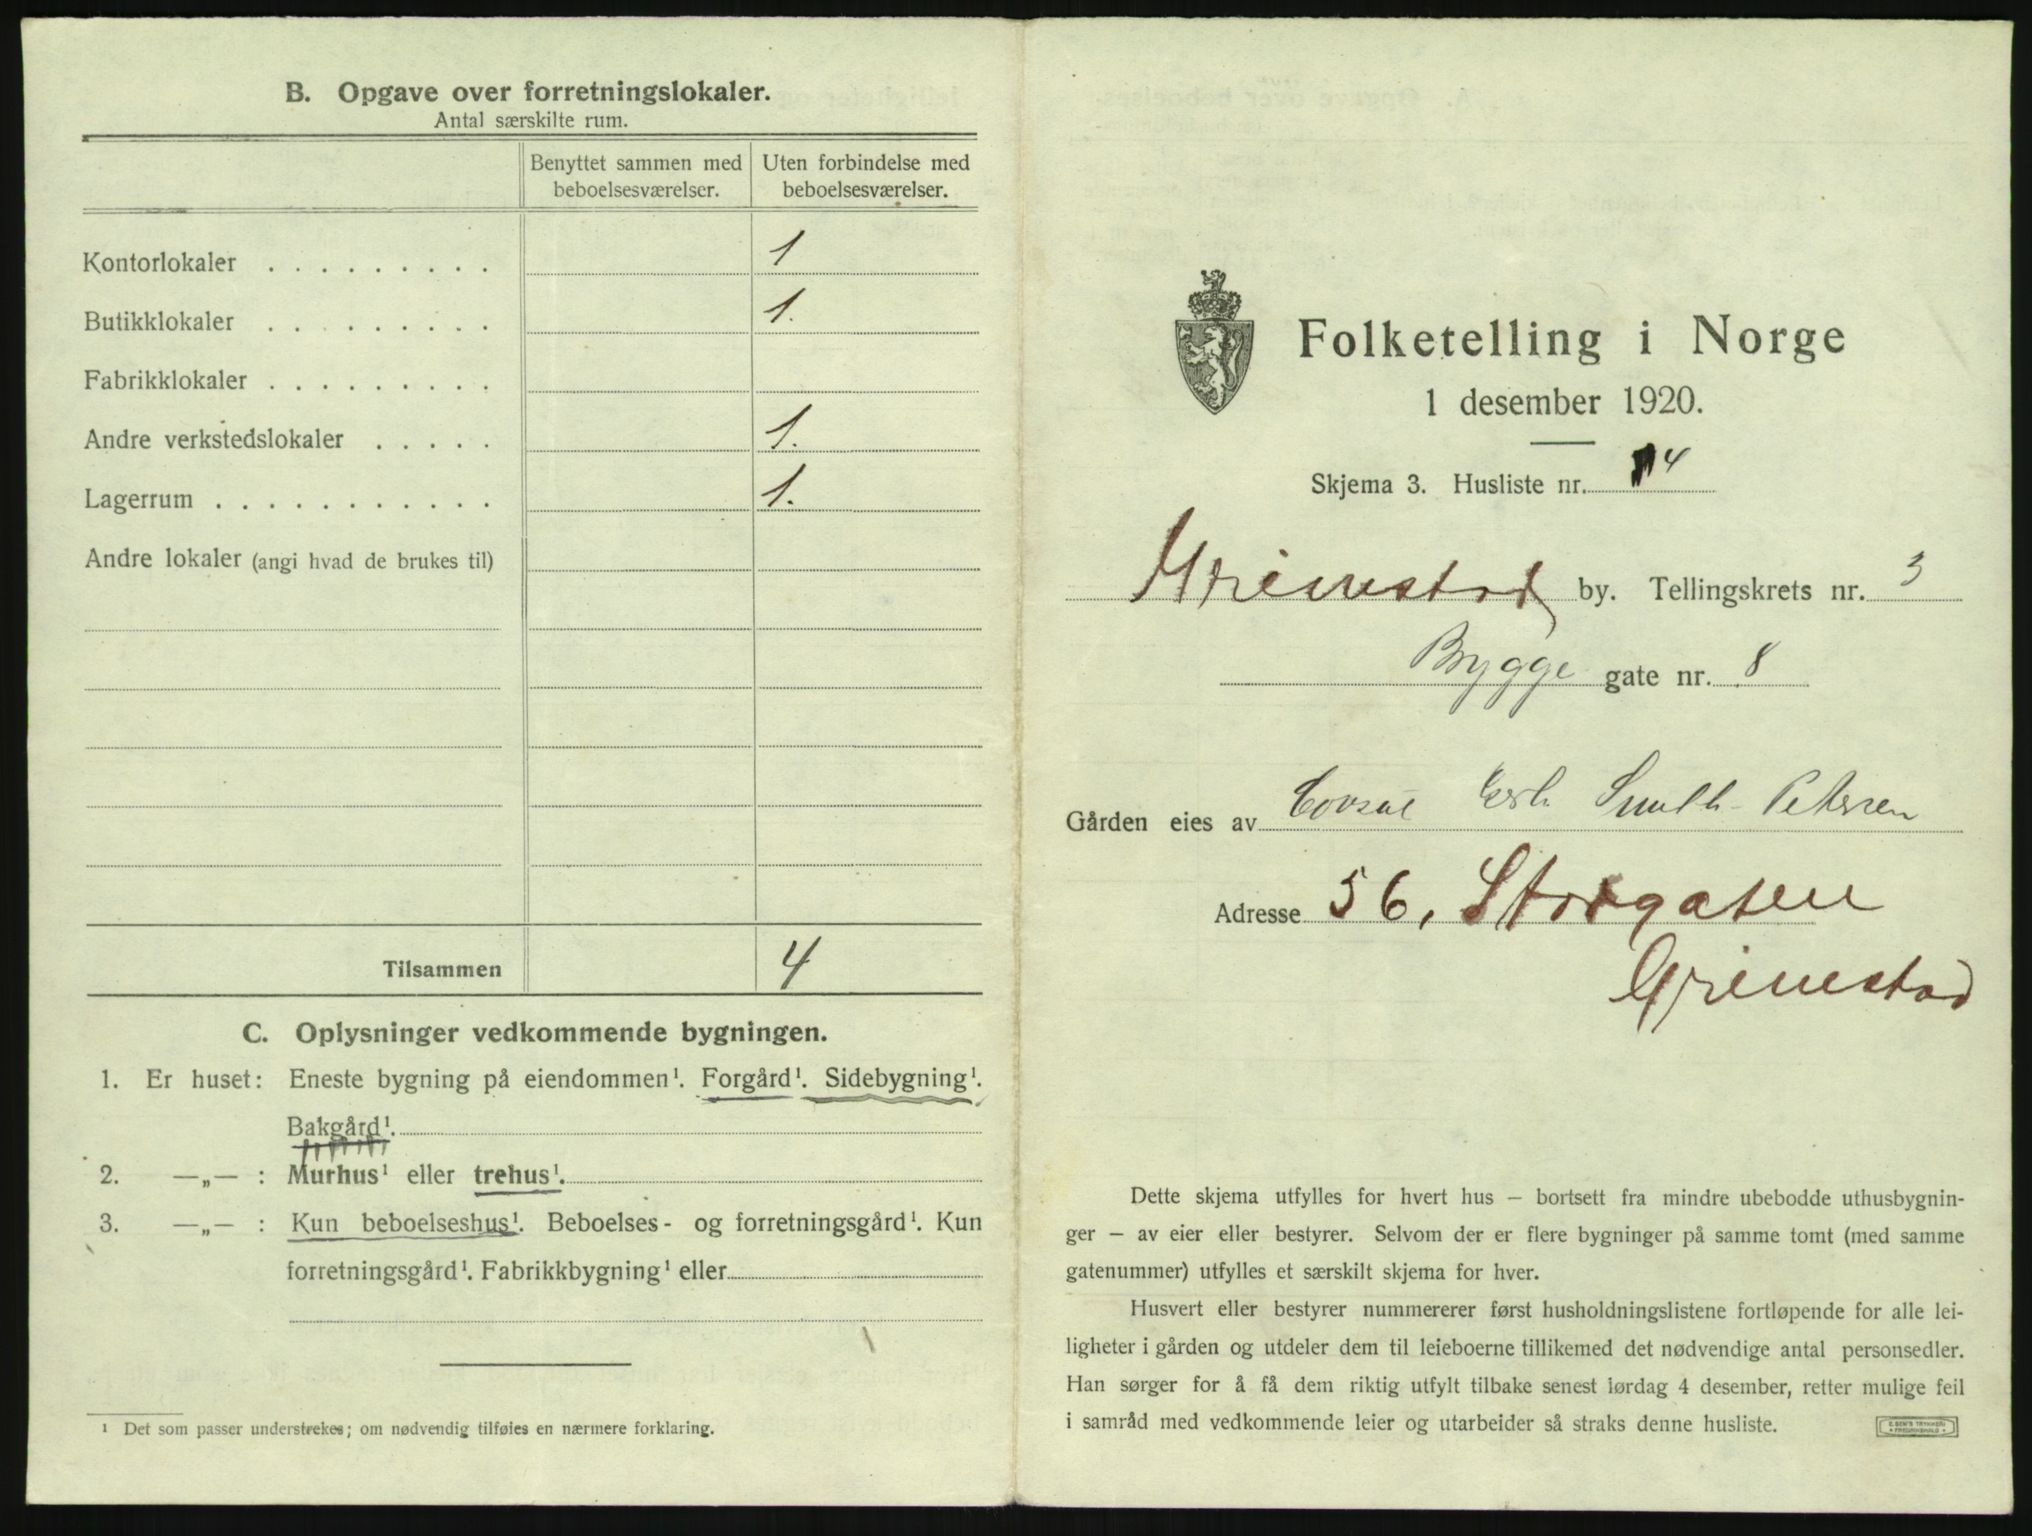 B. Opgave over forretningslokaler.
Antal særskilte rum.
Benyttet sammen med beboelsesværelser.
Uten forbindelse med beboelsesværelser.
Kontorlokaler . . . . . . . . . 1
Butikklokaler . . . . . . . . . 1.
Fabrikklokaler . . . . . . . . .
Andre verkstedslokaler . . . . . 1.
Lagerrum . . . . . . . . . . . 1.
Andre lokaler (angi hvad de brukes til)
Tilsammen 4
C. Oplysninger vedkommende bygningen.
1. Er huset: Eneste bygning på eiendommen¹. Forgård¹. Sidebygning¹.
Bakgård¹.
2. —„— : Murhus¹ eller trehus¹.
3. —„— : Kun beboelseshus¹. Beboelses- og forretningsgård¹. Kun
forretningsgård¹. Fabrikkbygning¹ eller
¹ Det som passer understrekes; om nødvendig tilføies en nærmere forklaring.
Folketelling i Norge
1 desember 1920.
Skjema 3. Husliste nr. 4
Grimstad by. Tellingskrets nr. 3
Brygge gate nr. 8
Gården eies av Smith-Petersen
Adresse 56, Storgaten
Grimstad
Dette skjema utfylles for hvert hus – bortsett fra mindre ubebodde uthusbygnin-
ger – av eier eller bestyrer. Selvom der er flere bygninger på samme tomt (med samme
gatenummer) utfylles et særskilt skjema for hver.
Husvert eller bestyrer nummererer først husholdningslistene fortløpende for alle lei-
ligheter i gården og utdeler dem til leieboerne tillikemed det nødvendige antal personsedler.
Han sørger for å få dem riktig utfylt tilbake senest lørdag 4 desember, retter mulige feil
i samråd med vedkommende leier og utarbeider så straks denne husliste.